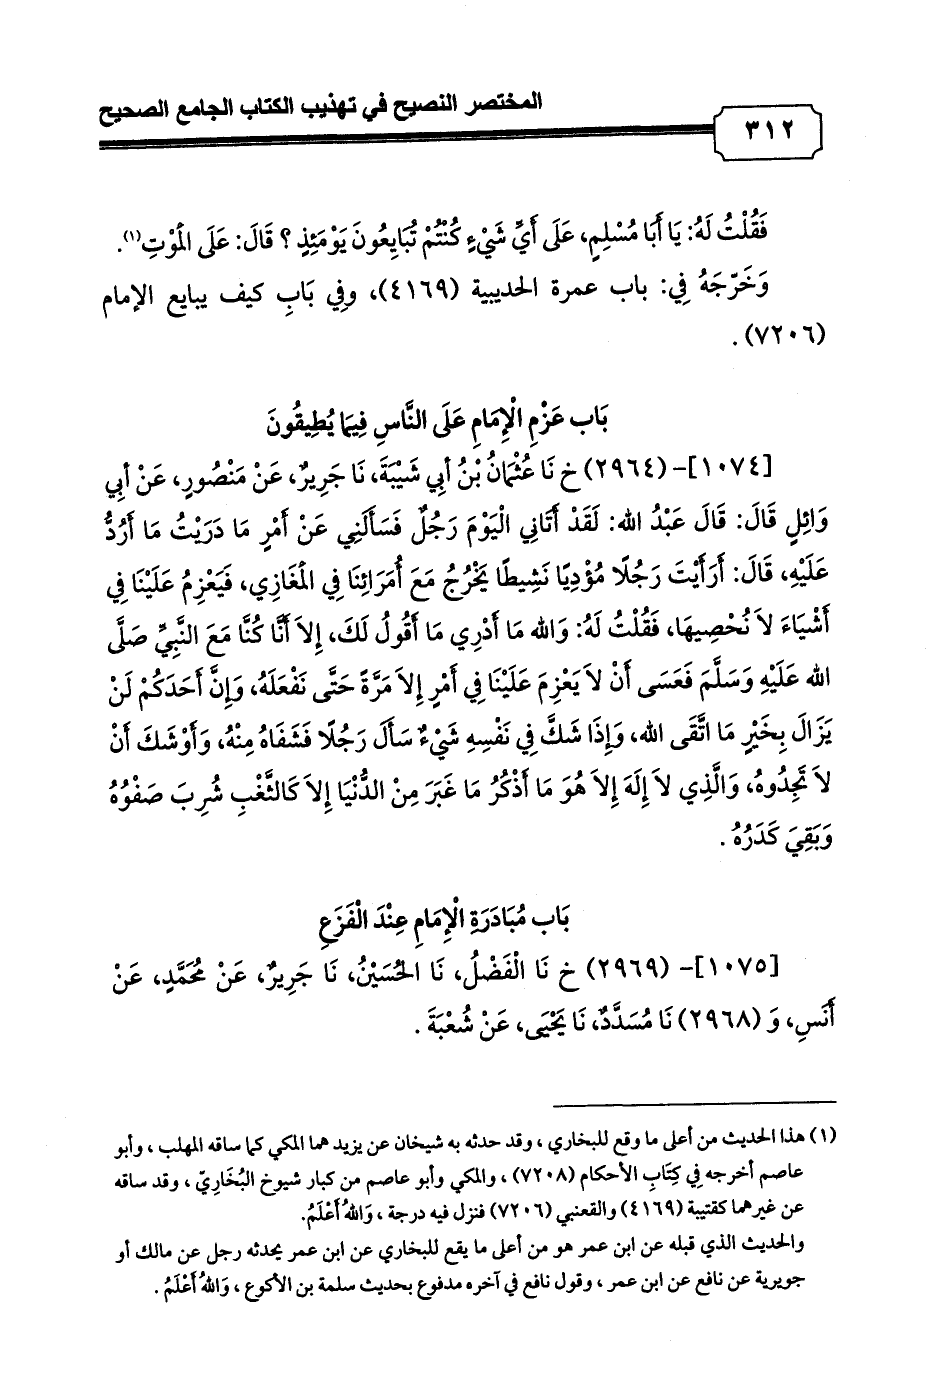 المختصر النصيح في تهذيب الكتاب الجامع الصحيح
٣١٢
فَقُلْتُ لَهُ: يَا أَبَا مُسْلِمٍ، عَلَى أَيِّ شَيْءٍ كُنْتُمْ تُبَايِعُونَ يَوْمَئِذٍ ؟ قَالَ: عَلَى الْمَوْتِ(١).
وَخَرَّجَهُ فِي: باب عمرة الحديبية (٤١٦٩)، وفِي بَابِ كيف يبايع الإمام
(٧٢٠٦) .
بَاب عَزْمِ الْإِمَامِ عَلَى النَّاسِ فِيمَا يُطِيقُونَ
[١٠٧٤]- (٢٩٦٤) خ نَا عُثْمَانُ بْنُ أَبِي شَيْبَةَ، نَا جَرِيرٌ، عَنْ مَنْصُورٍ، عَنْ أبِي
وَائِلٍ قَالَ: قَالَ عَبْدُ الله: لَقَدْ أَتَانِي الْيَوْمَ رَجُلٌ فَسَأَلَنِي عَنْ أَمْرٍ مَا دَرَيْتُ مَا أَرُدُّ
عَلَيْهِ، قَالَ: أَرَأَيْتَ رَجُلًا مُؤْدِيًا نَشِيطًا يَخْرُجُ مَعَ أُمَرَائِنَا فِي الْمَغَازِي، فَيَعْزِمُ عَلَيْنَا فِي
أَشْيَاءَ لاَ نُحْصِيهَا، فَقُلْتُ لَهُ: وَالله مَا أَدْرِي مَا أَقُولُ لَكَ، إِلاَ أَنَّا كُنَّا مَعَ النَّبِيِّ صَلَّى
الله عَلَيْهِ وَسَلَّمَ فَعَسَى أَنْ لاَ يَعْزِمَ عَلَيْنَا فِي أَمْرٍ إِلاَ مَرَّةً حَتَّى نَفْعَلَهُ، وَإِنَّ أَحَدَكُمْ لَنْ
يَزَالَ بِخَيْرٍ مَا اتَّقَى الله، وَإِذَا شَكَّ فِي نَفْسِهِ شَيْءٌ سَأَلَ رَجُلًا فَشَفَاهُ مِنْهُ، وَأَوْشَكَ أَنْ
لاَ تَجِدُوهُ، وَالَّذِي لاَ إِلَهَ إِلاَ هُوَ مَا أَذْكُرُ مَا غَبَرَ مِنْ الدُّنْيَا إِلاَ كَالثَّغْبِ شُرِبَ صَفْوُهُ
وَبَقِيَ كَدَرُهُ .
بَاب مُبَادَرَةِ الْإِمَامِ عِنْدَ الْفَزَعِ
[١٠٧٥]- (٢٩٦٩) خ نَا الْفَضْلُ، نَا الْحُسَيْنُ، نَا جَرِيرٌ، عَنْ مُحَمَّدٍ، عَنْ
أَنَسِ، وَ (٢٩٦٨) نَا مُسَدَّدٌ، نَا يَحْيَى، عَنْ شُعْبَةَ .
(١) هذا الحديث من أعلى ما وقع للبخاري ، وقد حدثه به شيخان عن يزيد هما المكي كما ساقه المهلب ، وأبو
عاصم أخرجه فِي كِتَابِ الأحكام (٧٢٠٨) ، والمكي وأبو عاصم من كبار شيوخ البُخَارِيّ ، وقد ساقه
عن غيرهما كقتيبة (٤١٦٩) والقعنبي (٧٢٠٦) فنزل فيه درجة ، وَاللهُ أَعْلَمُ.
والحديث الذي قبله عن ابن عمر هو من أعلى ما يقع للبخاري عن ابن عمر يحدثه رجل عن مالك أو
جويرية عن نافع عن ابن عمر ، وقول نافع في آخره مدفوع بحديث سلمة بن الأكوع ، وَاللهُ أَعْلَمُ .